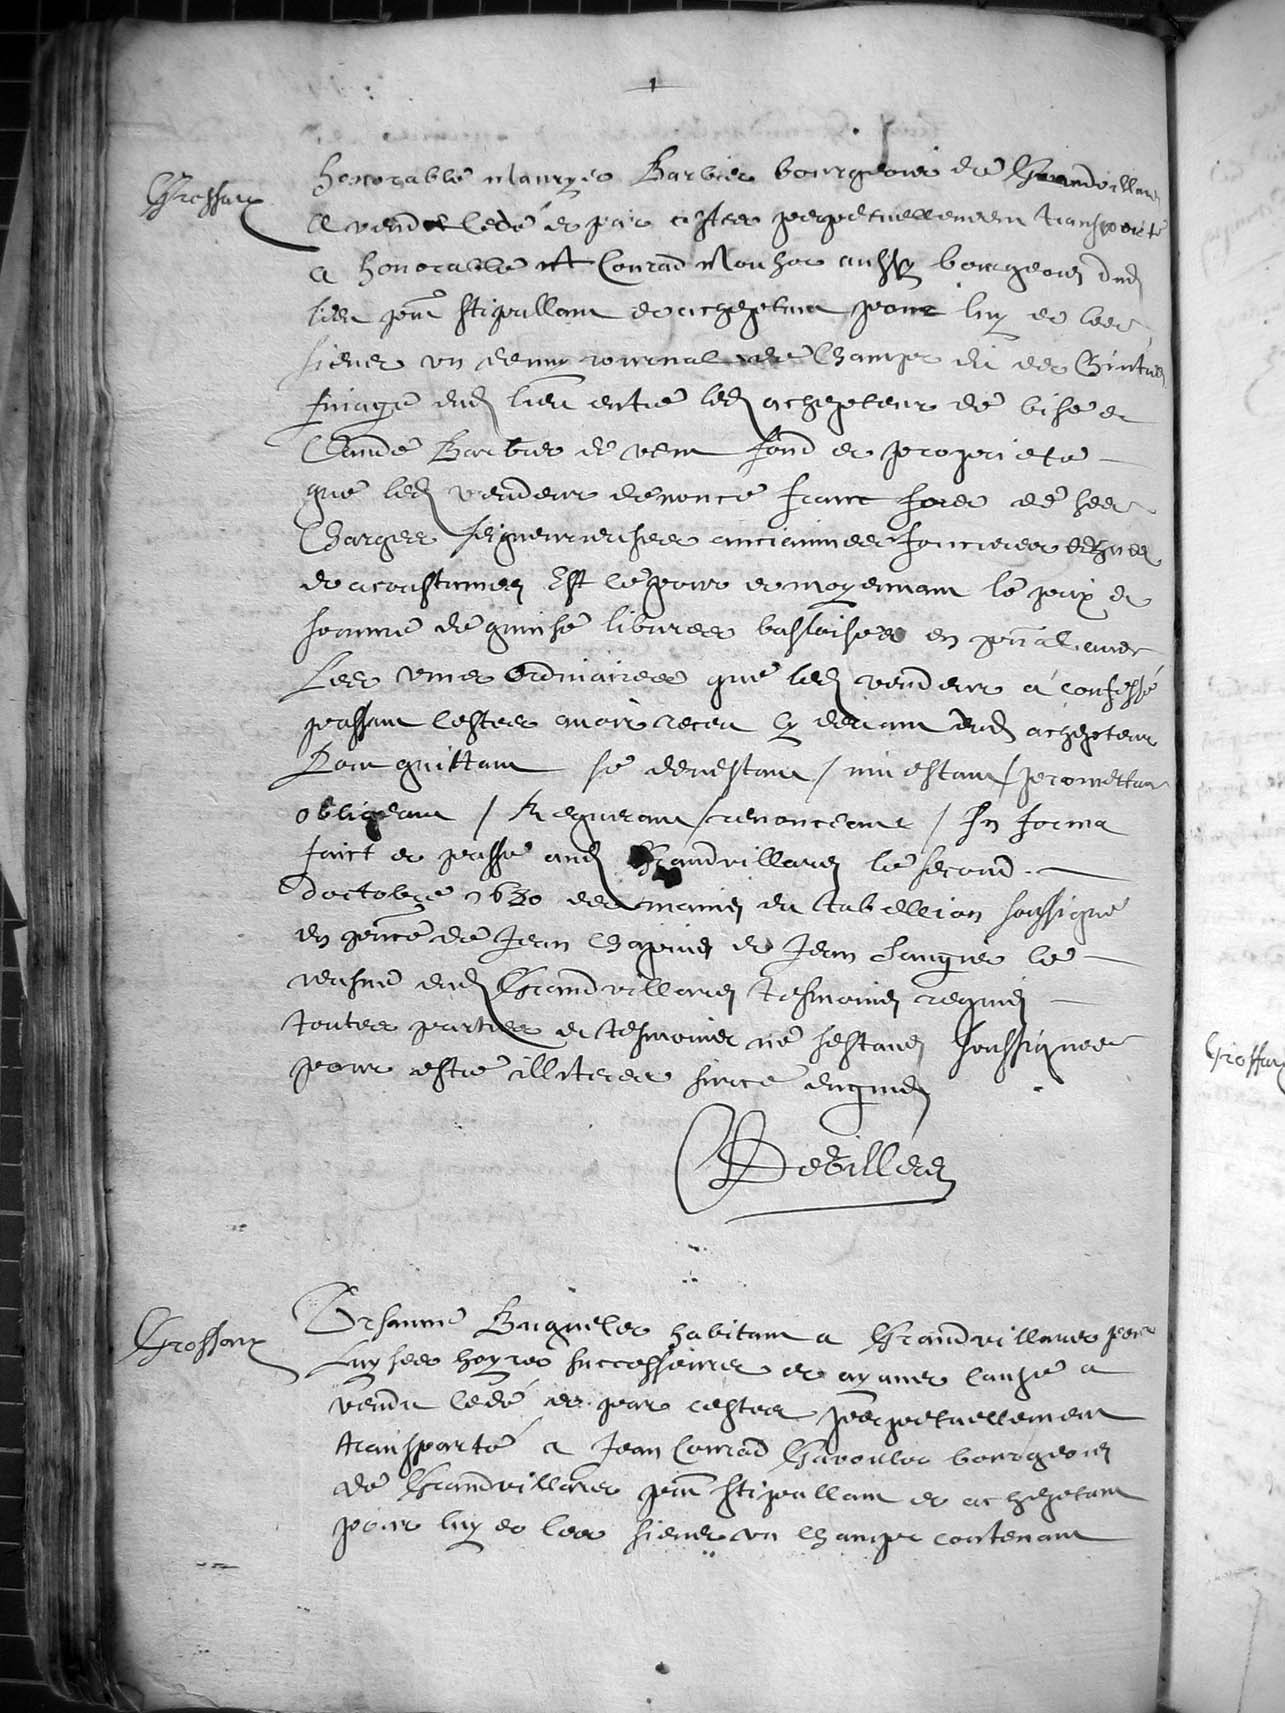 Grossoye
honorable Mauryes Barbier bourgeois de Grandvillars
a vendu cedé et par cestes perpetuellement transporté
a honorable Conrad Monhor aussy bourgeois dud
lieu pnt stipullant et acheptant pour luy et les
siens un demy journal de champs dit es
finage dud lieu entre led achepteur de bise et
Claude Barbier de vent fond et proprieté
que led vendeur denonce franc fors de ses
charges seigneurieuses anciainnes foncieres
et acoustumes Est ce pour et moyennant le prix et
somme de quinse libvres basloises en pnal avec
Les vins ordinaires que led vendeur a confessé
passant cestes avoir receu cy devant dud achepteur
Dont quittant se devestant / investant / promettant
obligeant / Requerant / renonceant / In forma
faict et passé aud Grandvillars le second
doctobre 1630 des mains du tabellion soussigné
en pnce de Jean Chapuis et Jean Sangier le
dud Grandvillars tesmoins requis
toutes parties et tesmoins ne sestans soussignes
pour estre illiteres surce enquis
Devilleres
Grossoye
Orsanne Buguelet habitant a Grandvillars pour
Luy ses hoyres successeures et ayans cause a
vendu cedé et par cestes perpetuellement
transporté a Jean Conrad bourgeois
de Grandvillars pnt stipullant et acheptant
pour luy et les siens un champs contenant
Grossoye